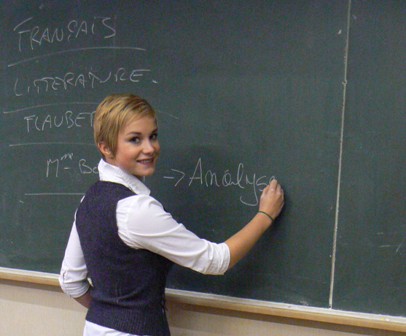 FRANÇAIS
LITTERATURE.
FLAUBE
Mme Bo → Analyse